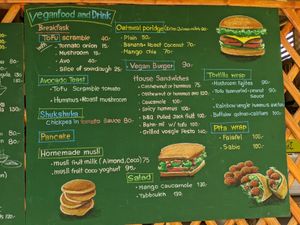 Veganfood and Drink
Breakfast
Tofu scramble 40.-
Tomato onion 15.-
Mushroom 15.-
Avo 40.-
Slice of sourdough 25.-
Avocado Toast
Tofu Scramble tomato
Humtus Roast mushroom
Shukshuka
Chickpea in tomato Sauce 80.-
Pancake
Homemade musli
musli fruit milk (Almond, Coco) 75
musli fruit coco yoghurt 95.-
Oatmeal poridge
Plain 50.-
Banana Roast Coconut 70.-
Mango chia 70.-
Vegan Burger 90.-
House Sandwiches
Cashewnut or hummus
Cashewnut or hummus and
Guacamole
Spicy hummus 100.-
BBQ Pulled Jack fruit 100.-
Bahn-mi w/ Tofu 100.-
Grilled veggie Pesto 140.-
Salad
Mango Guacamole 120.-
Tabbouleh 120.-
Tortilla wrap
Mushroom fajitas 90.-
Tofu Sauce 100.-
Rainbow veggie hummus
Buffalo quinoa-
Pita wrap
Falafel 100.-
Sabic 100.-